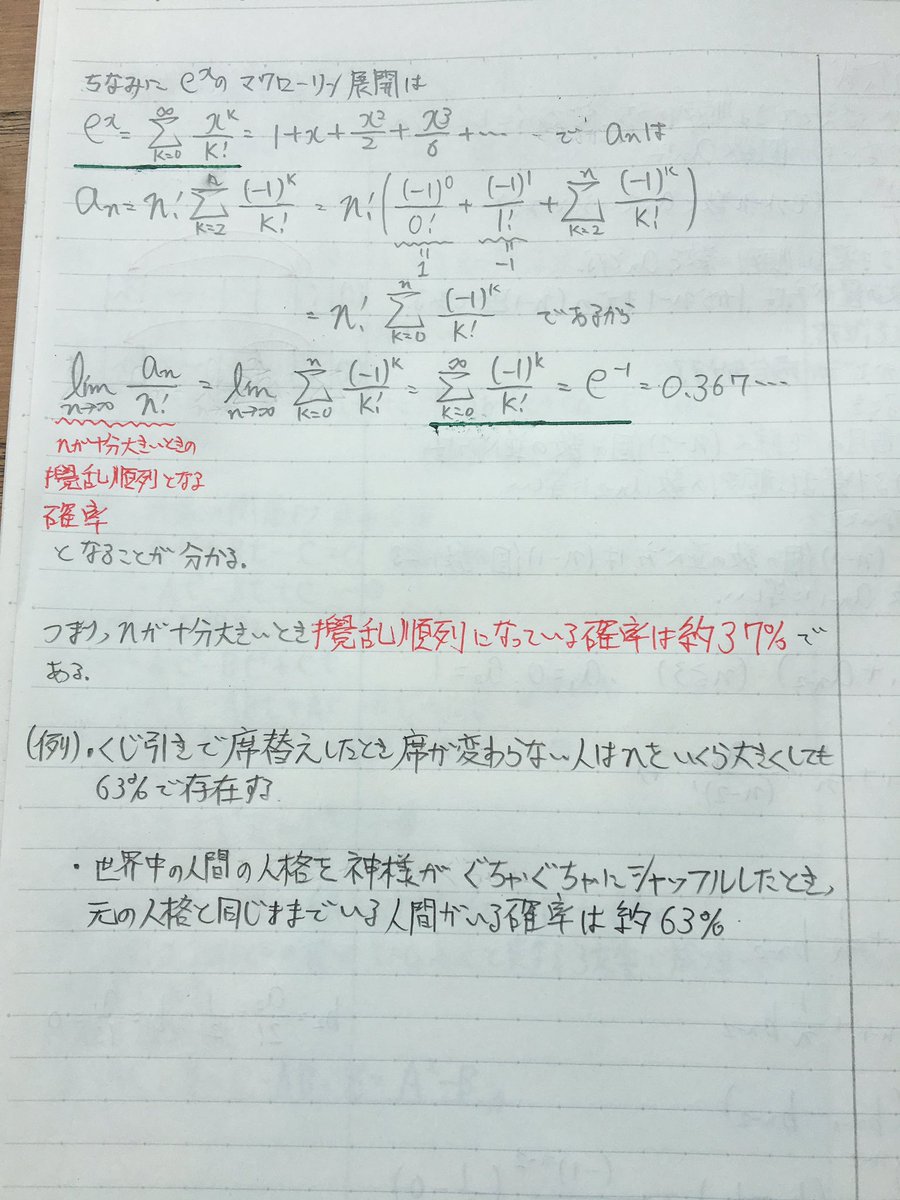 ちなみに e^xの マクローリン展開は
e^x = Σ_{k=0}^{∞} x^k/k! = 1+x+x^2/2+x^3/6+⋯ で anは
an = n! Σ_{k=2}^{n} (-1)^k/k! = n! ( (-1)^0/0! + (-1)^1/1! + Σ_{k=2}^{n} (-1)^k/k! )
= 1 = -1
= n! Σ_{k=0}^{n} (-1)^k/k! であるから
lim_{n→∞} an/n! = lim_{n→∞} Σ_{k=0}^{n} (-1)^k/k! = Σ_{k=0}^{∞} (-1)^k/k! = e^-1 = 0.367⋯
nが十分大きいときの
攪乱順列となる
確率
となることが分かる.
つまり, nが十分大きいとき攪乱順列になっている確率は約37%で
ある.
(例)・くじ引きで席替えしたとき席が変わらない人はnをいくら大きくしても
63%で存在する
・世界中の人間の人格を神様がぐちゃぐちゃにシャッフルしたとき,
元の人格と同じままでいる人間がいる確率は約63%